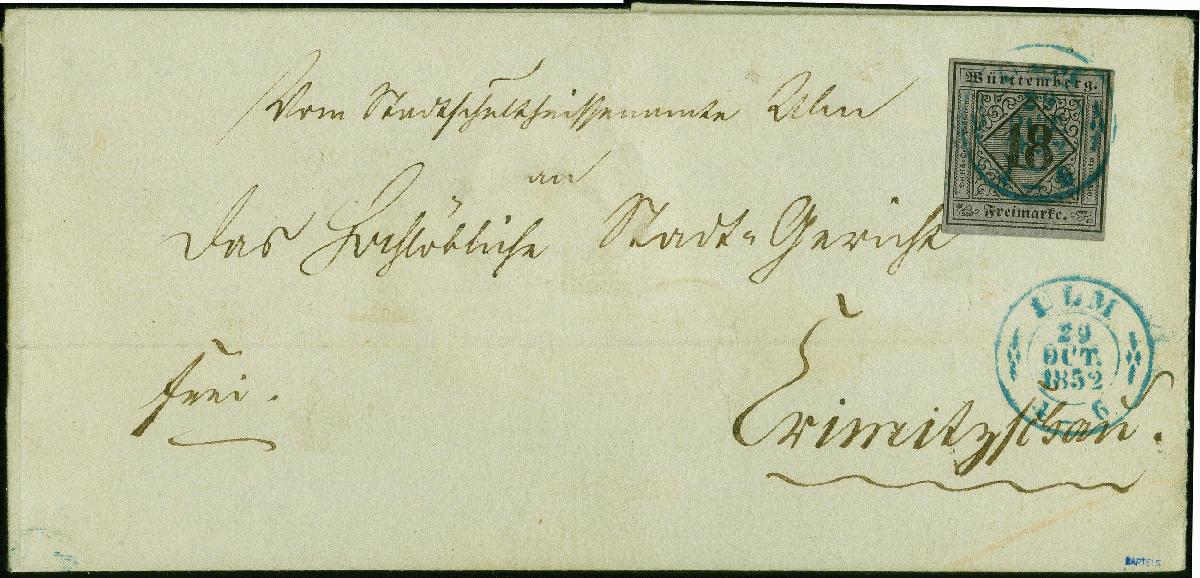 Vom Stadtschultheissenamte Ulm
an
das Hochlöbliche Stadt= Gericht
Crimitzschau.
frei.
Württemberg.
18
Freimarke.
ULM
29
OCT.
1852
6
BARTELS